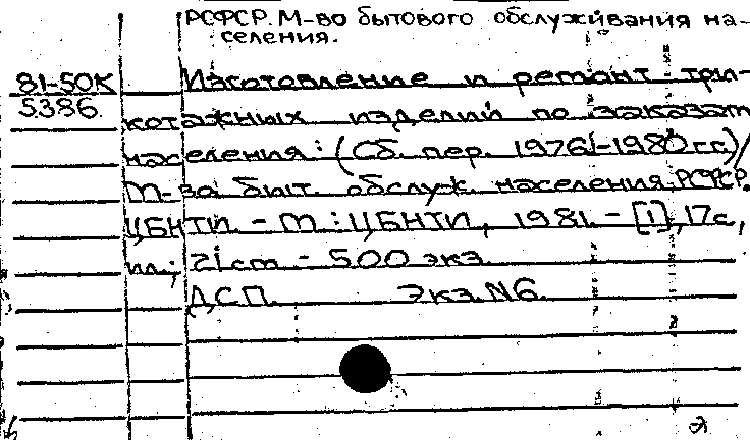 РСФСР. М-во бытового обслуживания на-
селения.
81-50К
5386.
Изготовление и ремонт три-
котажных изделий по заказам
населения: (Сб. пер. 1976-1980 гг)/
М-во быт. обслуж. населения РСФСР.
ЦБНТИ. - М.: ЦБНТИ, 1981. - [1], 17с,
ил.; 21 см - 500 экз.
Д.С.П. Экз. N6.